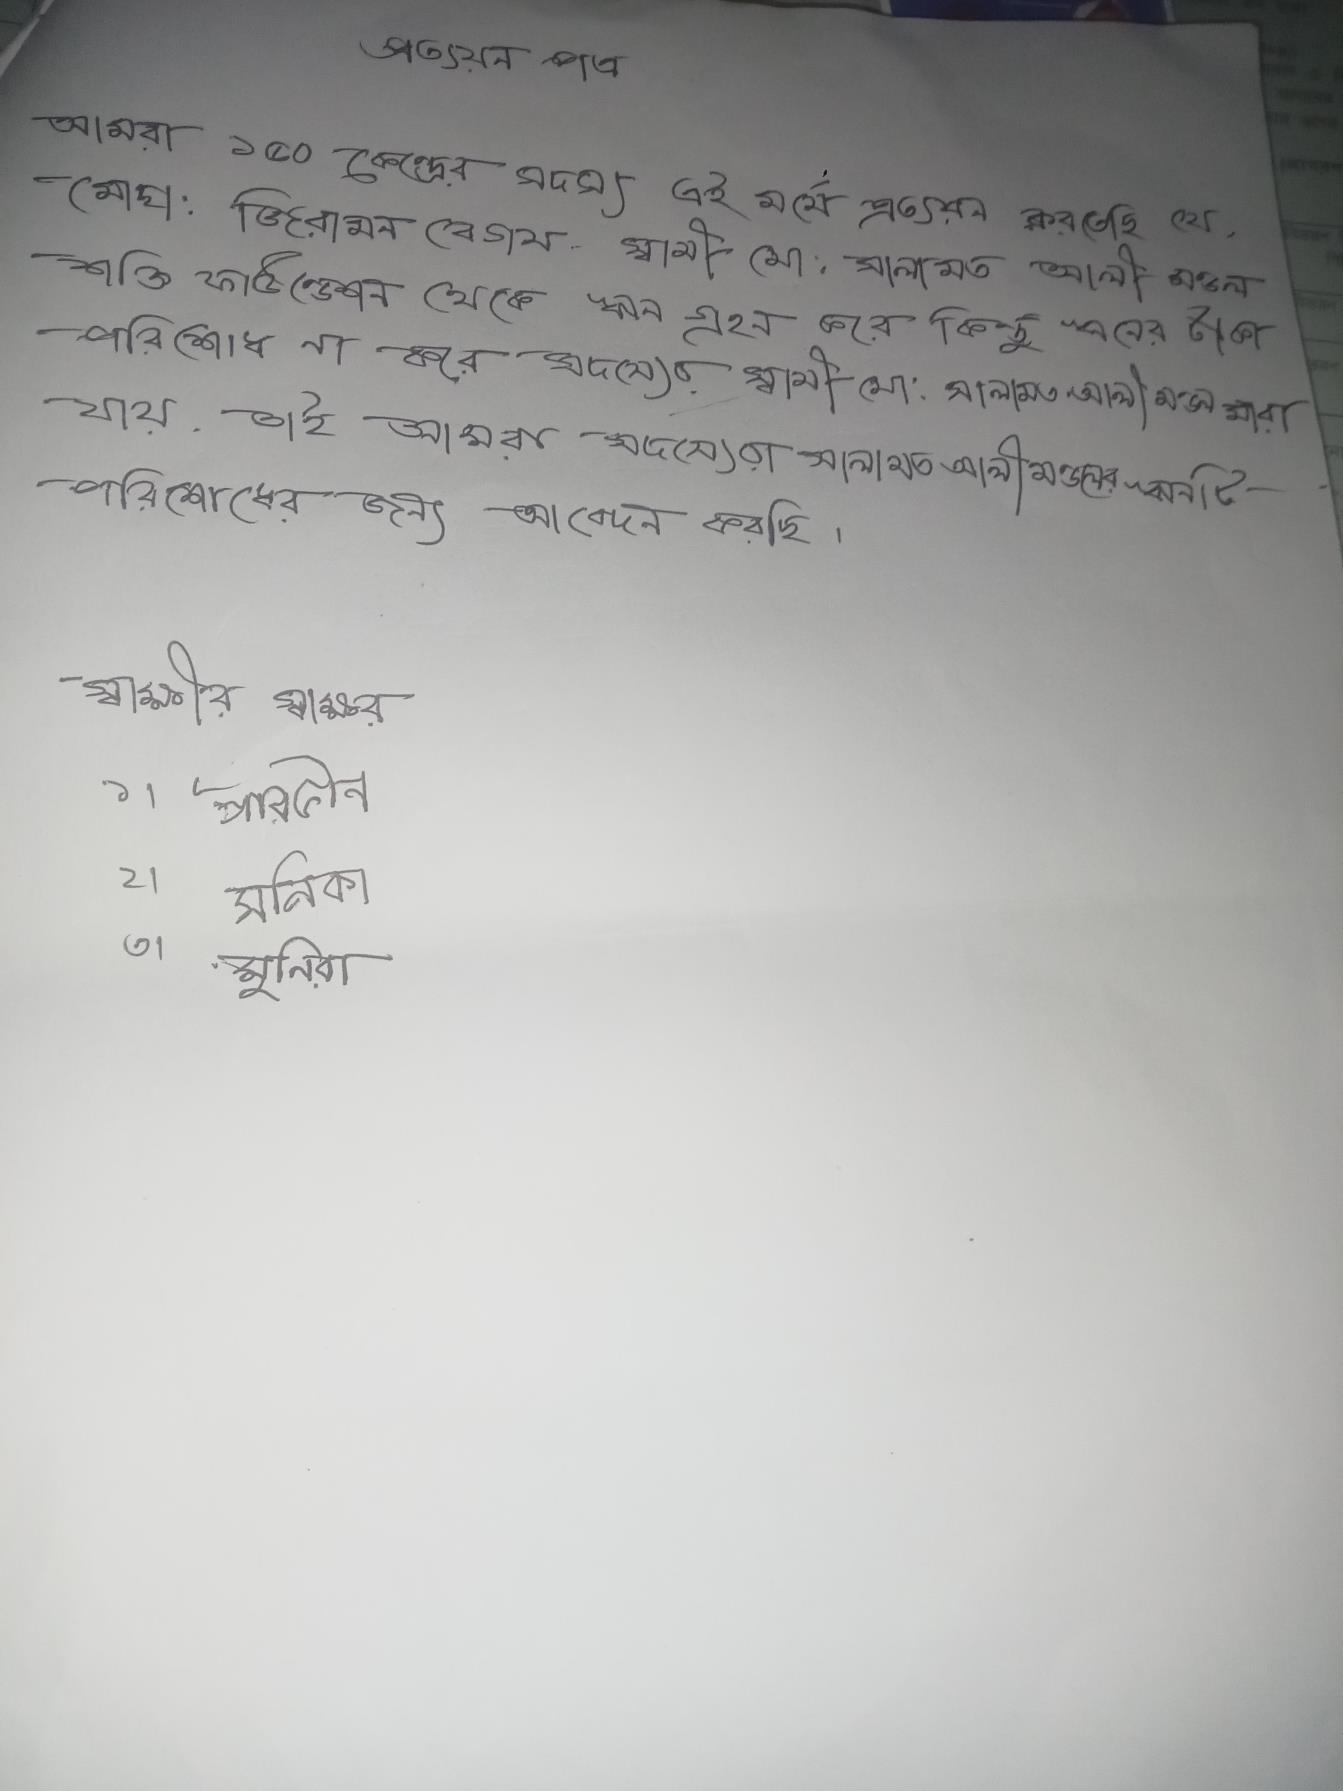 প্রত্যয়ন পত্র
আমরা ১৫০ কেন্দ্রের সদস্য এই মর্মে প্রত্যয়ন করতেছি যে,
মোছা: বেগম. স্বামী মো: সালামত আলী মন্ডল
শক্তি ফাউন্ডেশন থেকে ঋন গ্রহন করে কিন্তু ঋনের টাকা
পরিশোধ না করে সদস্যের স্বামী মো: সালামত আলী মন্ডল মারা
যায়. তাই আমরা সদস্যেরা সালামত আলী মন্ডলের ঋনটি
পরিশোধের জন্য আবেদন করছি।
স্বাক্ষীর স্বাক্ষর
১। পারভীন
২। মনিকা
৩। মুনিরা